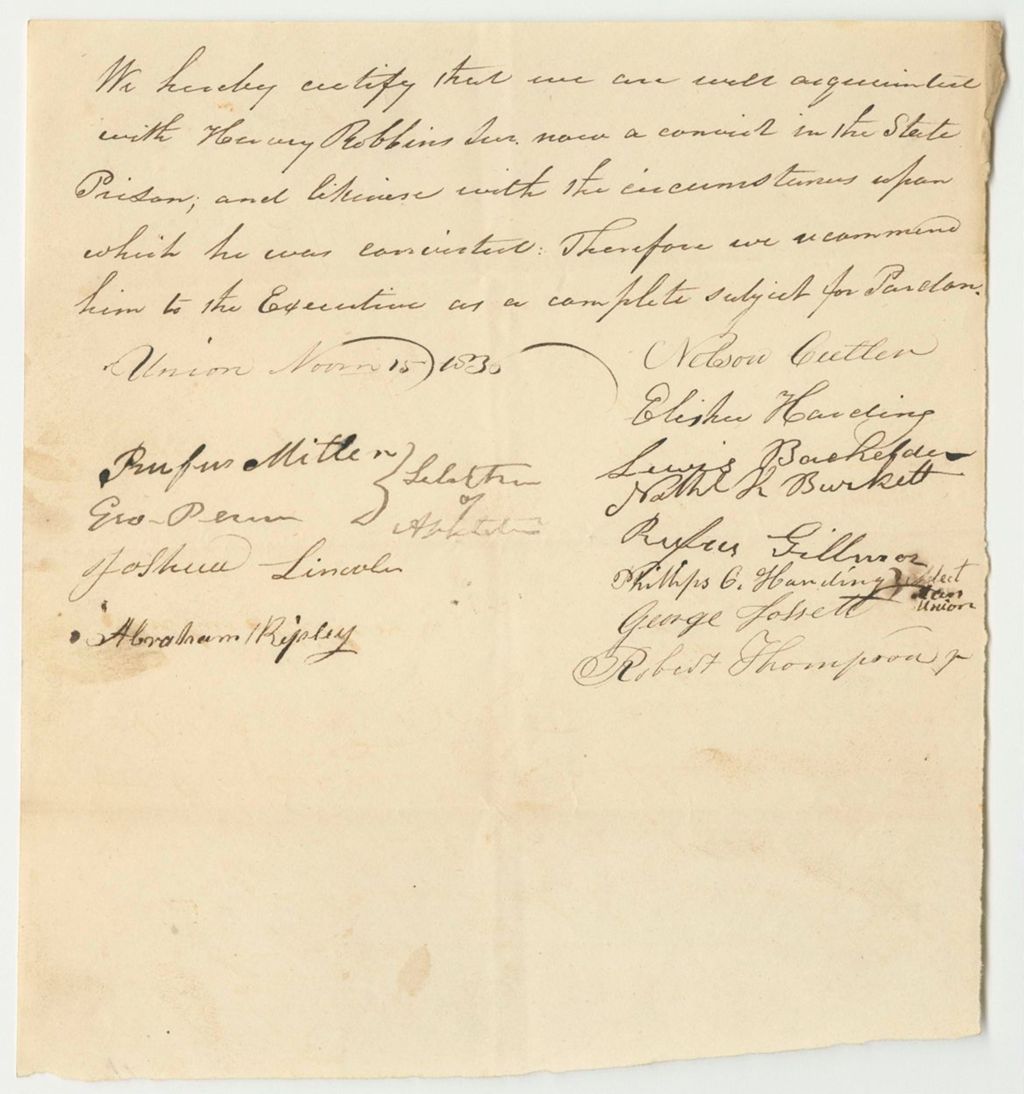 We hereby certify that we are well acquainted
with Hervey Robbins Jur. now a convict in the State
Prison; and likewise with the circumstances upon
which he was convicted: Therefore we recommend
him to the Executive as a complete subject for Pardon.
Union Novm 15 1830
Nelson Cutler
Elisha Harding
Lewis Bachelder
Nathl K Burkett
Rufus Gillmor
Phillips C. Harding
Union
George Fossett
Robert Thompson Jr
Rufus Miller
Geo
Joshua Lincoln
Selectmen
of
Appleton
Abraham Ripley